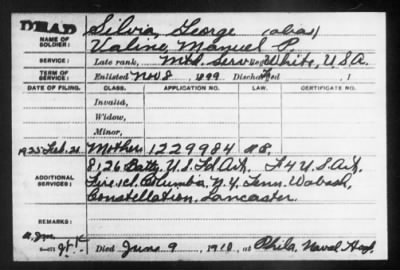 DEAD
Silvia, George (alias)
NAME OF SOLDIER:
Valine, Manuel P.
SERVICE:
Late rank, Mtd. Serv White, U.S.A.
TERM OF SERVICE:
Enlisted Nov 8, 1899 Discharged , 1
DATE OF FILING. CLASS. APPLICATION NO. LAW. CERTIFICATE NO.
Invalid,
Widow,
Minor,
1925 Feb. 21 Mother 1229984
ADDITIONAL SERVICES:
8, 126 Batty. U.S. Fd Art. F 4 U.S. Art.
Fire 1cl. Columbia, N.Y. Tenn Wabash,
Constellation, Lancaster.
REMARKS:
Died June 9 1910, at Phila. Naval Hosp.